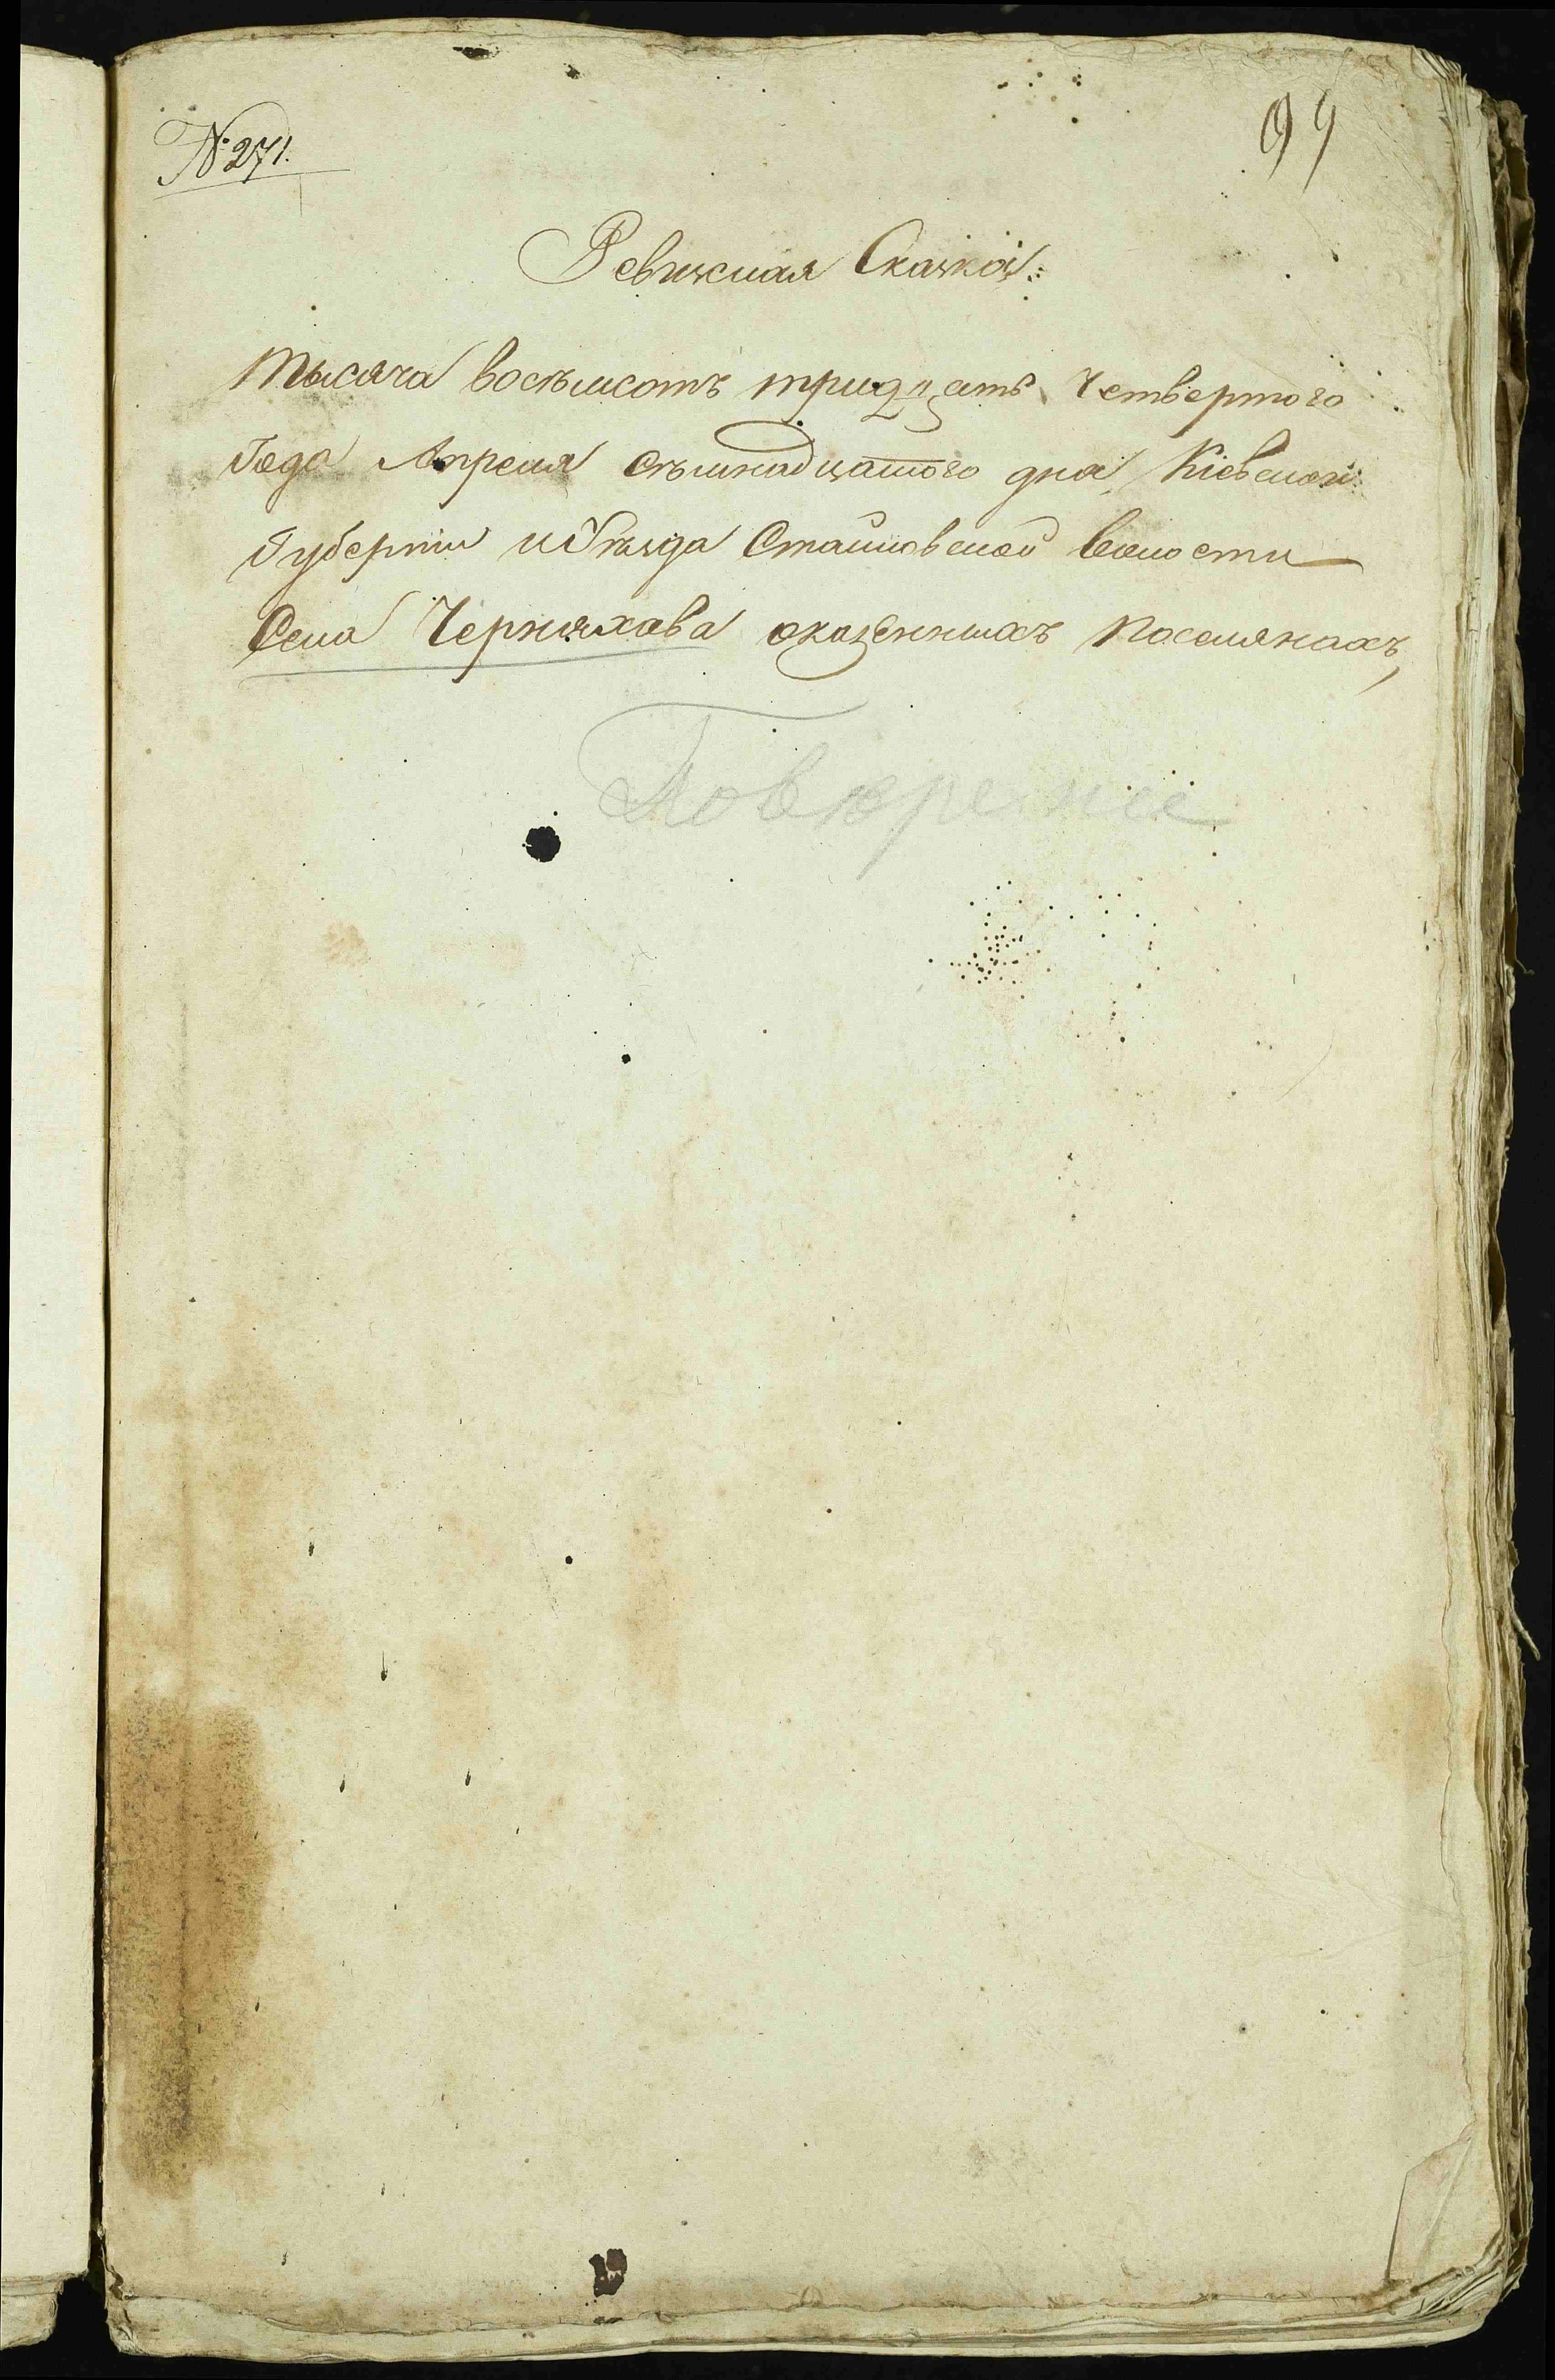 № 271.
99
Ревижская Сказка:
Тысяча восѣмсотъ тридцать Четвертого
Года Апреля сѣмнадцатого дня Кіевской
Губерніи и Уѣзда Стайковской волости
Села Черняхова оказенныхъ поселянахъ,
Повѣрение